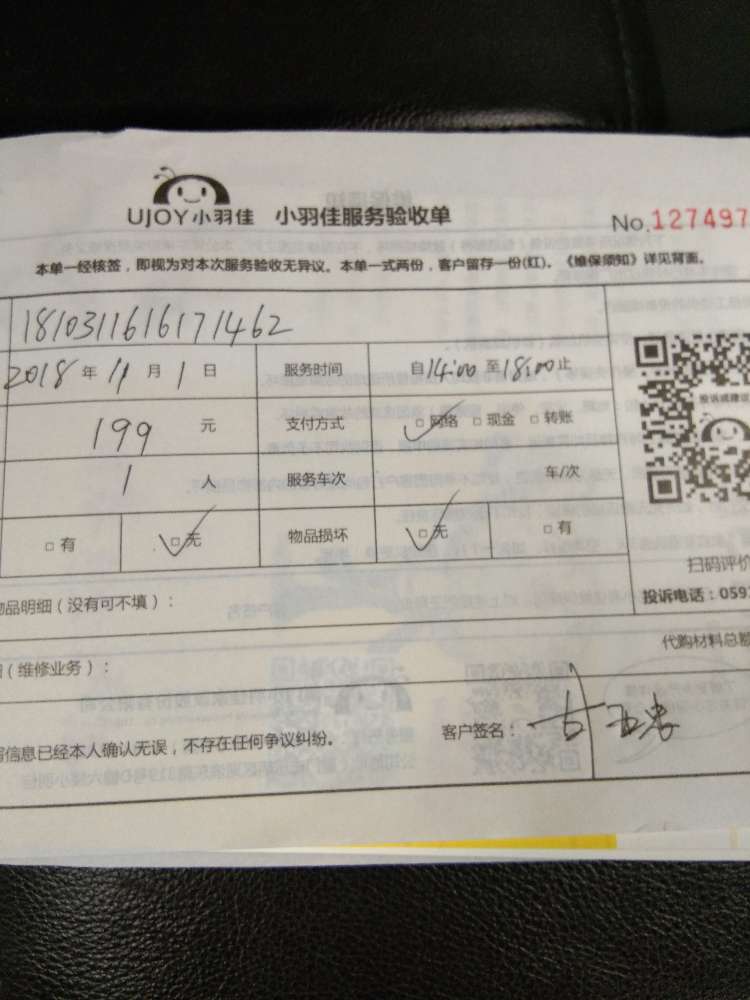 UJOY小羽佳 小羽佳服务验收单 No.127497
本单一经核签，即视为对本次服务验收无异议。本单一式两份，客户留存一份(红)。《维保须知》详见背面。
1810311616171462
2018年11月1日 服务时间 自14:00至18:00止
投诉或建议
199 元 支付方式 □网络 □现金 □转账
1 人 服务车次 车/次
□有 □无 物品损坏 □无 □有
扫码评价
物品明细（没有可不填）： 投诉电话：059
代购材料总额
（维修业务）：
信息已经本人确认无误，不存在任何争议纠纷。 客户签名：